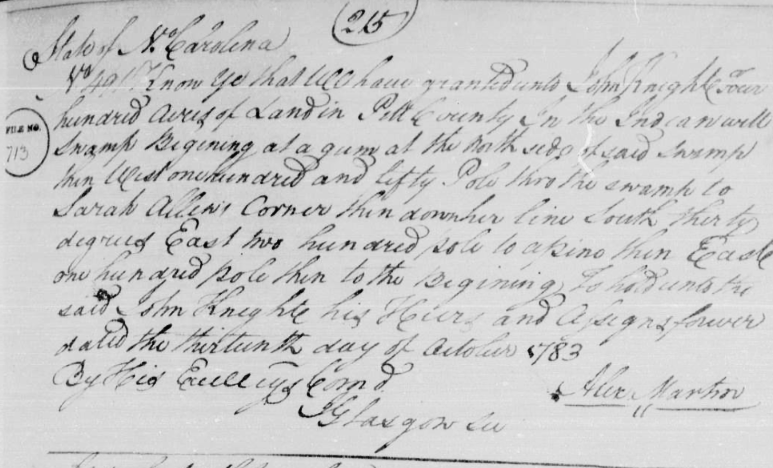 215
State of No. Carolina
No 491. Know Ye that We have granted unto John Knighte Four
hundred Acres of Land in Pitt County In the Indian well
FILE NO.
713
Swamp Begining at a gum at the North side of said Swamp
then West one hundred and fifty Pole thro the swamp to
Sarah Allen's Corner then down her line South thirty
degrees East two hundred pole to a pine then East
one hundred pole then to the Begining To hold unto the
said John Knighte his Heirs and Assigns forever
dated the thirteenth day of October 1783
By His Excellcys Comd. Alex Martin
J Glasgow Sec